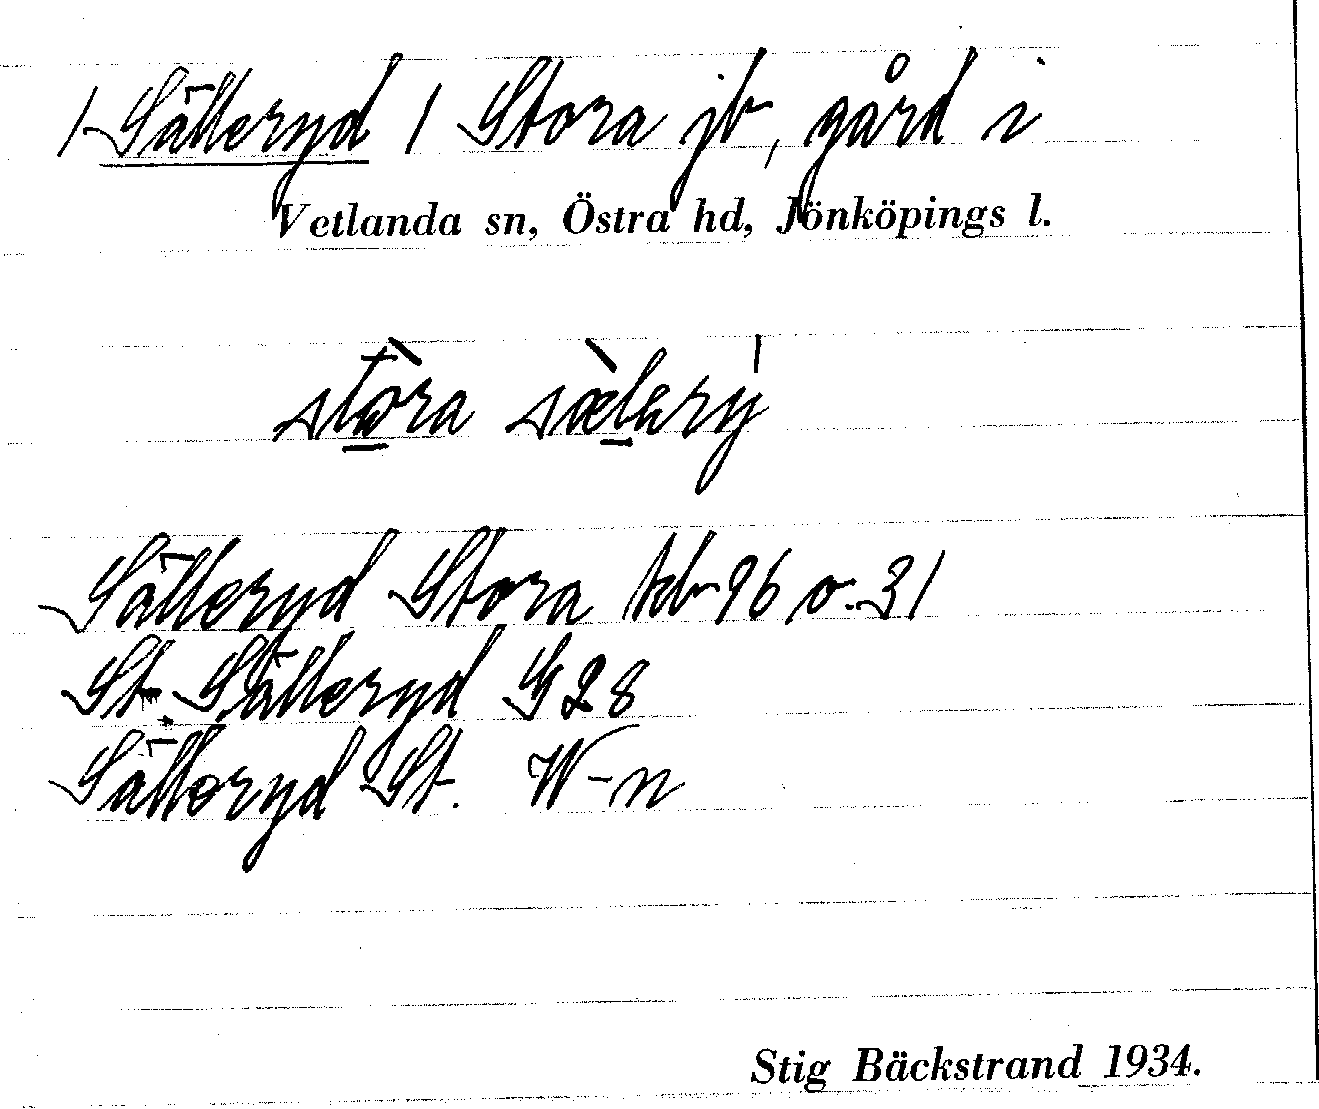 / Sälleryd / Stora jb, gård i
Vetlanda sn, Östra hd, Jönköpings l.
stora sælery
Sälleryd Stora kb 96 o. 31
St. Sälleryd G 28
Sälleryd St. W-n
Stig Bäckstrand 1934.